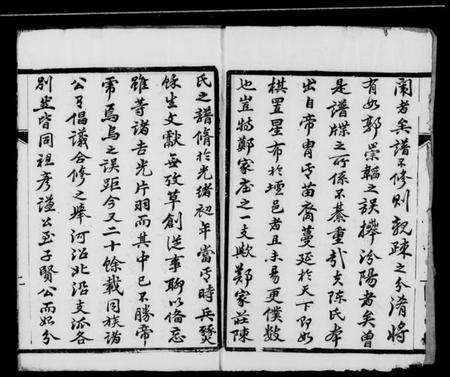 闌者矣譜不修則親疎之分淆將
有如郭崇韜之誤拜汾陽者矣曾
是譜牒之所係不綦重哉吾陳氏本
出自帝胄虞苗裔蔓延於天下即如
棋置星布於壇邑者且未易更僕數
也豈特鄭家庄之一支歟鄭家莊陳
氏之譜脩於光緒初年當時兵燹
餘生文獻無攷草創從事聊以備忘
雖等諸吉光片羽而其中已不勝帝
虎焉烏之誤距今又二十餘載同族諸
公乎倡議合修之舉河沿北沿支派各
別並皆同祖彥謹公至子賢公而始分